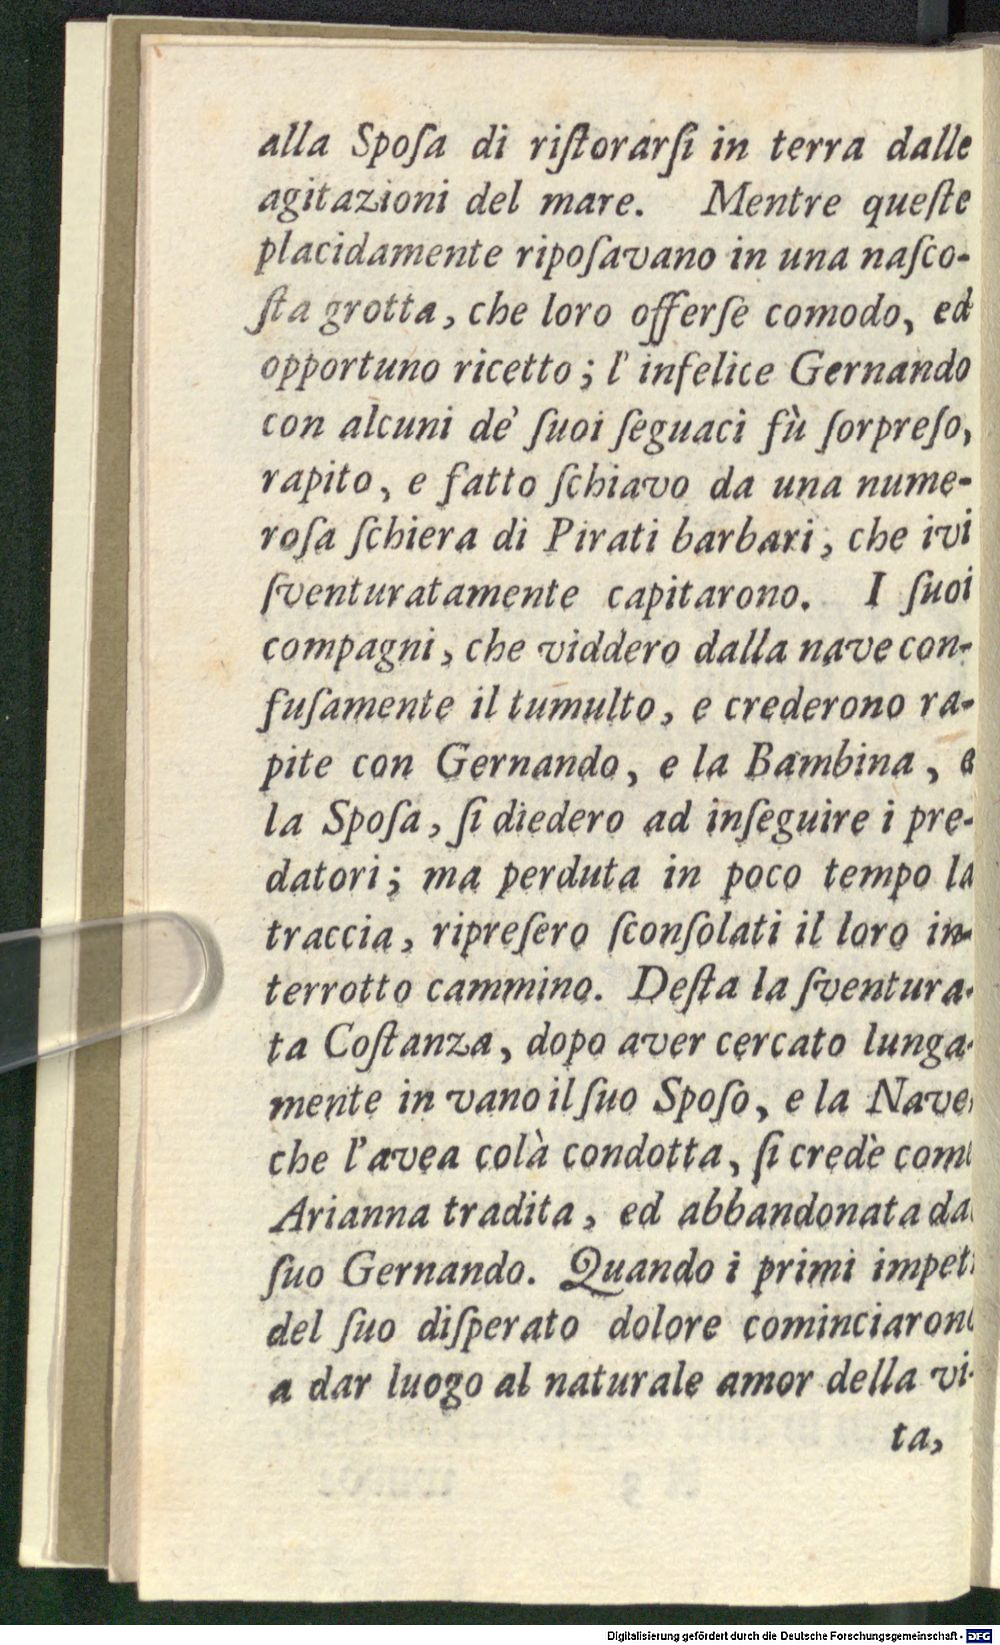 alla Spoſa di riſtorarſi in terra dalle
agitazioni del mare. Mentre queſte
placidamente ripoſavano in una naſco-
ſta grotta, che loro offerſe comodo, ed
opportuno ricetto; l' infelice Gernando
con alcuni de' ſuoi ſeguaci fù ſorpreſo,
rapito, e fatto ſchiavo da una nume-
roſa ſchiera di Pirati barbari, che ivi
ſventuratamente capitarono. I ſuoi
compagni, che viddero dalla nave con-
fuſamente il tumulto, e crederono ra-
pite con Gernando, e la Bambina, e
la Spoſa, ſi diedero ad inſeguire i pre-
datori; ma perduta in poco tempo la
traccia, ripreſero ſconſolati il loro in-
terrotto cammino. Deſta la ſventura-
ta Coſtanza, dopo aver cercato lunga-
mente in vano il ſuo Spoſo, e la Nave
che l'avea colà condotta, ſi credè com
Arianna tradita, ed abbandonata da
ſuo Gernando. Quando i primi impet
del ſuo diſperato dolore cominciaron
a dar luogo al naturale amor della vi-
ta,
Digitalisierung gefördert durch die Deutsche Forschungsgemeinschaft - DFG